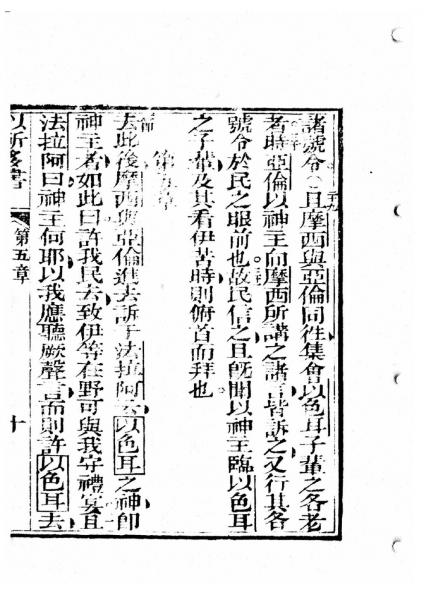 諸號令且摩西與亞倫同往集會以色耳子輩之各老
者時亞倫以神主向摩西所講之諸言皆訴之又行其各
號令於民之眼前也故民信之且既聞以神主臨以色耳
之子輩及其看伊苦時則俯首而拜也
第五章
去此後摩西與亞倫進去訴于法拉阿云以色耳之神即
神主者如此曰許我民去致伊等在野可與我守禮宴且
法拉阿曰神主何耶以我應聽厥聲言而則許以色耳去
第五章
十